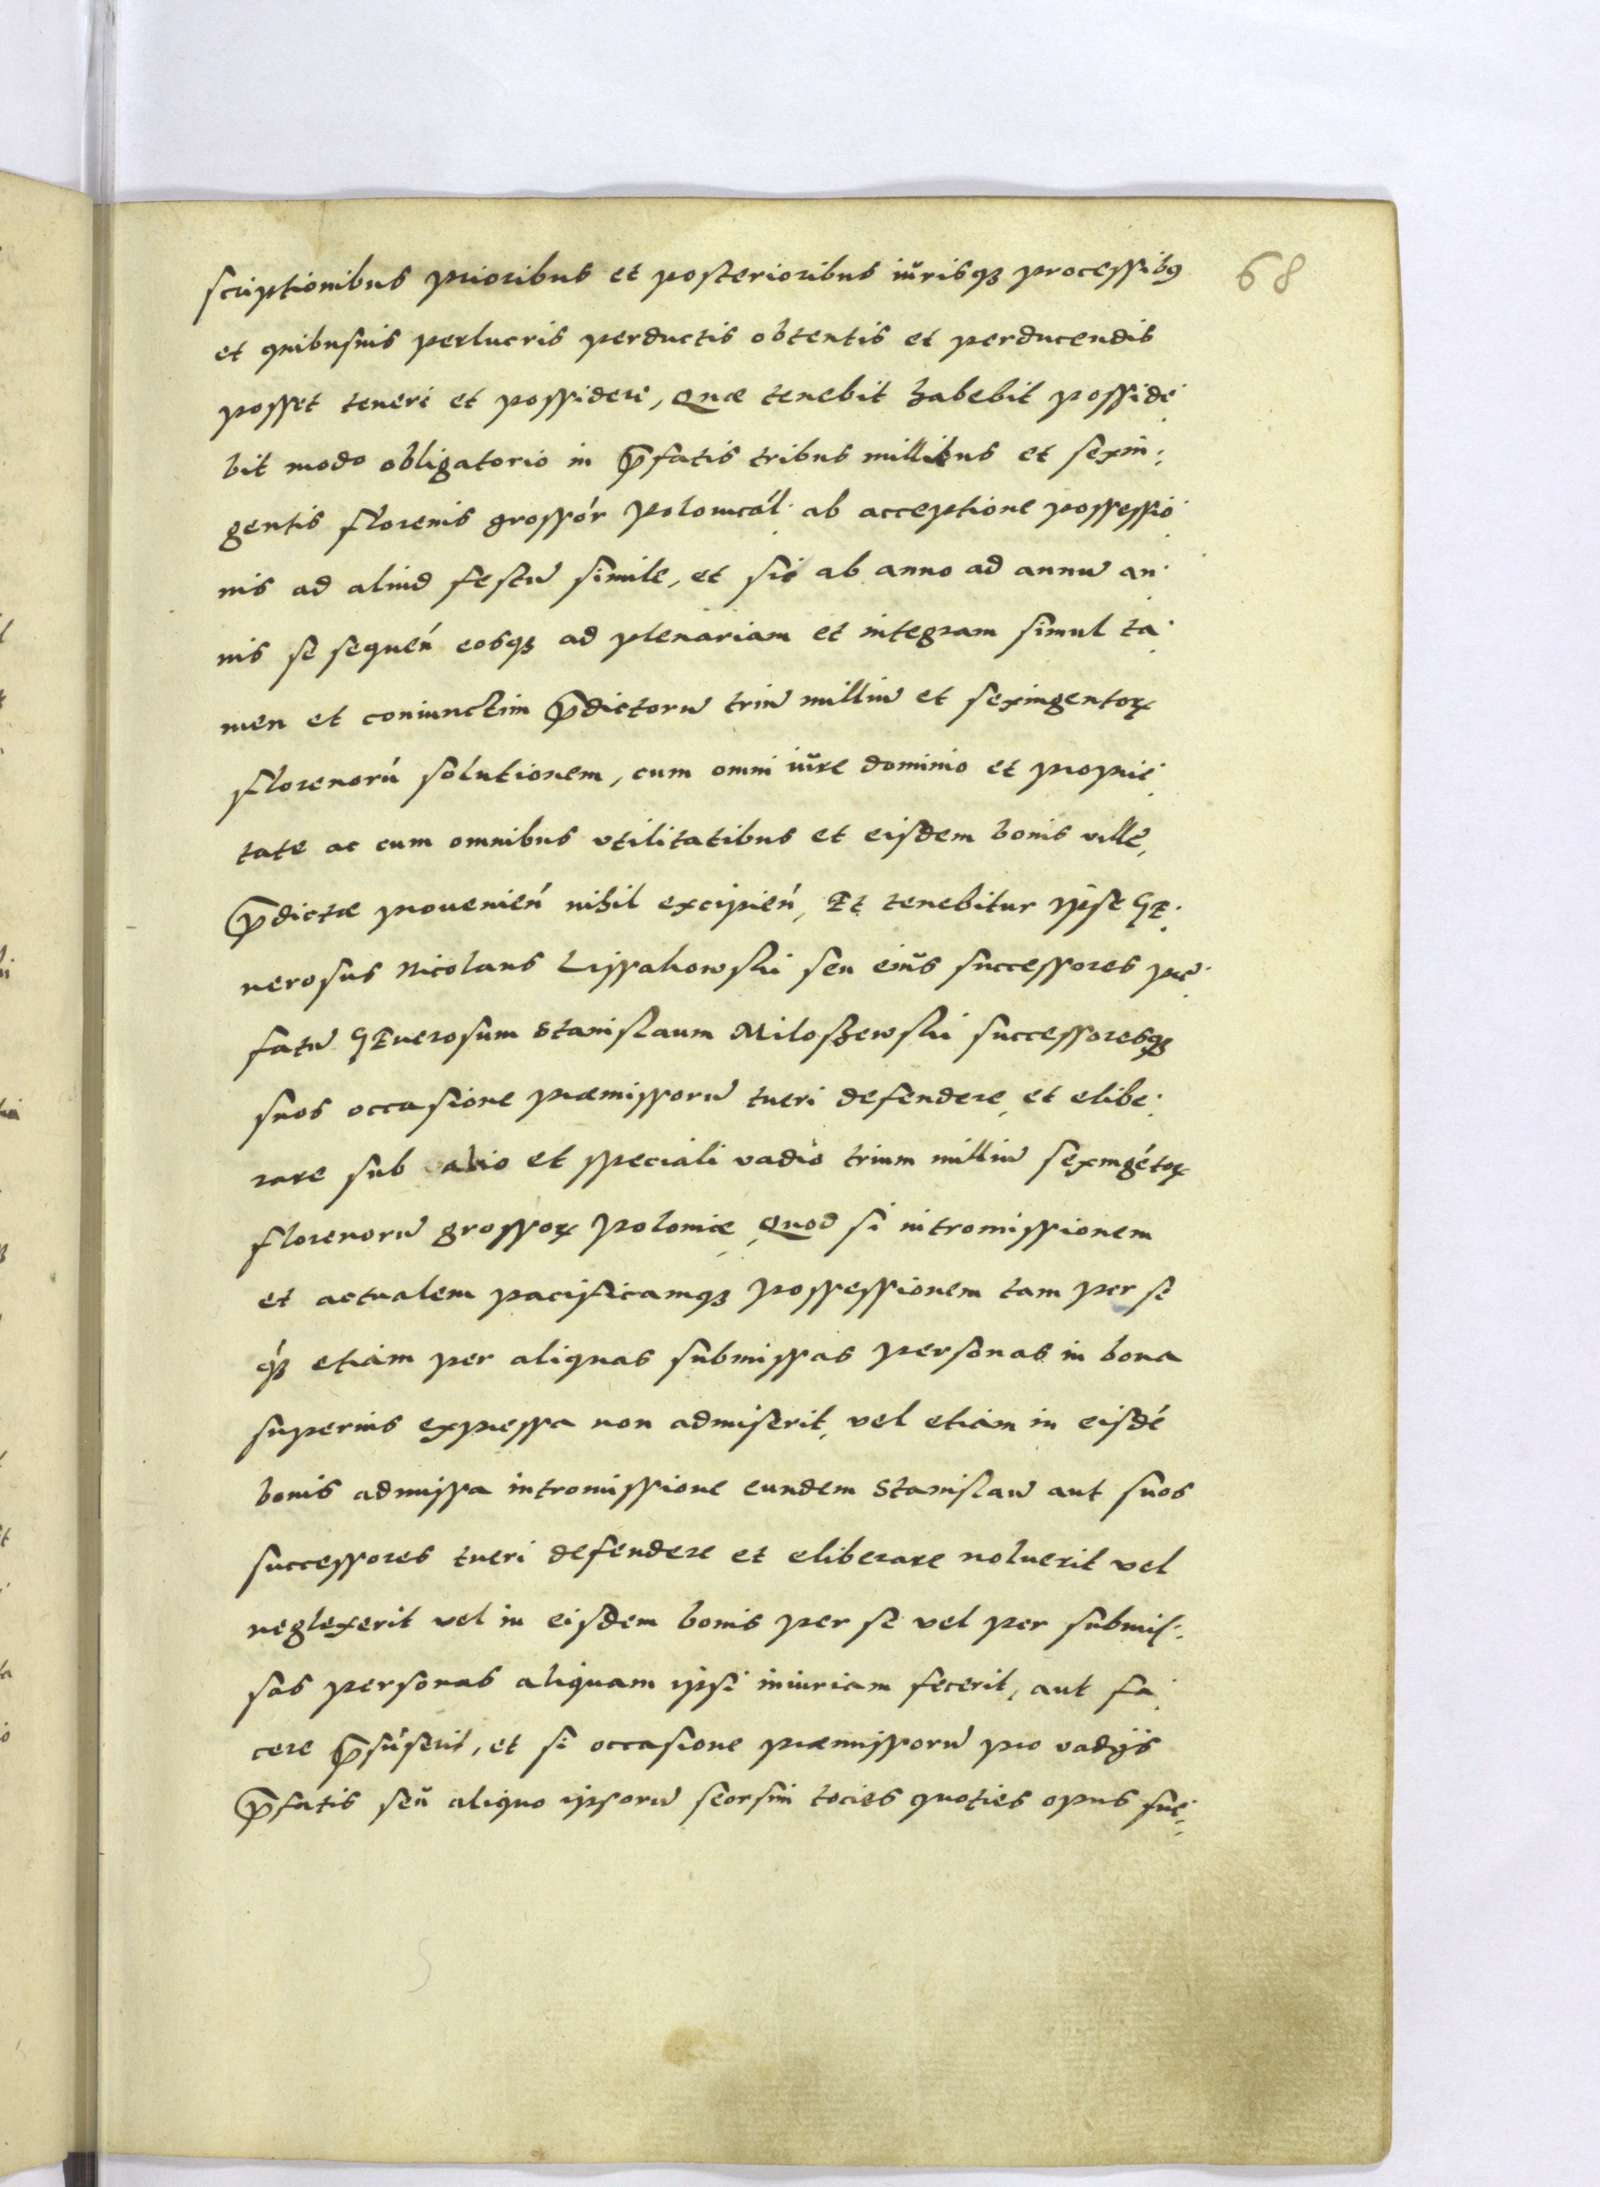 68
scriptionibus prioribus et posterioribus iurisq₃ processibꝰ
et quibusuis perlucris perductis obtentis et perducendis
posset teneri et possidere, Quæ tenebit habebit posside
bit modo obligatorio in p̄fatis tribus millibus et sexin:
gentis florenis grossór polonicál. ab acceptione possessio
nis ad aliud festũ simile, et sic ab anno ad annũ an
nis se sequeń eosq₃ ad plenariam et integram simul ta
men et coniunctim p̄dictorũ triũ milliũ et sexingentoꝝ
florenorú solutionem, cum omni iure dominio et proprie
tate ac cum omnibus vtilitatibus et eisdem bonis ville
p̄dictæ prouenień nihil excipień, Et tenebitur ipse GE
nerosus Nicolaus Lippakowski seu eius successores præ
fatũ GEnerosum Stanislaum Miloszewski successoresq₃
suos occasione præmissorũ tueri defendere et elibe
rare sub alio et speciali vadio trium milliũ sexingétoꝝ
florenorũ grossoꝝ poloniæ, Quod si intromissionem
et actualem pacificamq₃ possessionem tam per se
q₃́ etiam per aliquas submissas personas in bona
superius expressa non admiserit, vel etiam in eisdé
bonis admissa intromissione eundem Stanislaũ aut suos
successores tueri defendere et eliberare noluerit vel
neglexerit vel in eisdem bonis per se vel per submis:
sas personas aliquam ipsi iniuriam fecerit, aut fa
cere p̄súserit, et si occasione præmissorũ pro vadijs
p̄fatis seu aliquo ipsorũ seorsim tocies quoties opus fue: